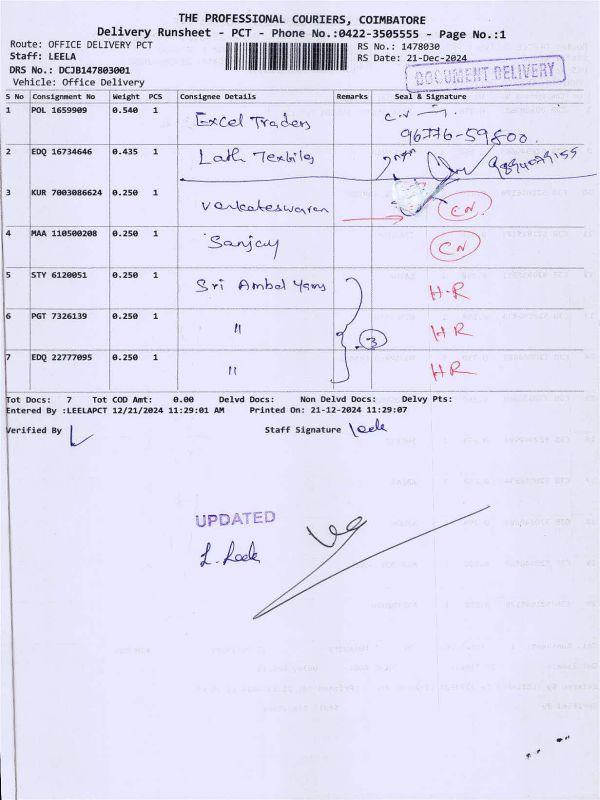 THE PROFESSIONAL COURIERS, COIMBATORE
Delivery Runsheet - PCT - Phone No.:0422-3505555 - Page No.:1
Route: OFFICE DELIVERY PCT RS No.: 1478030
Staff: LEELA RS Date: 21-Dec-2024
DRS No.: DCJB147803001
DOCUMENT DELIVERY
Vehicle: Office Delivery
S No Consignment No Weight PCS Consignee Details Remarks Seal & Signature
1 POL 1659909 0.540 1 Excel Traders
96776-59800.
2 EDQ 16734646 0.435 1 Lath Textiles
3 KUR 7003086624 0.250 1 Venkateswaran CN.
4 MAA 110500208 0.250 1 Sanjay CN
5 STY 6120051 0.250 1 Sri Ambal Yarns H-R
6 PGT 7326139 0.250 1 " 3 HR
7 EDQ 22777095 0.250 1 " HR
Tot Docs: 7 Tot COD Amt: 0.00 Delvd Docs: Non Delvd Docs: Delvy Pts:
Entered By :LEELAPCT 12/21/2024 11:29:01 AM Printed On: 21-12-2024 11:29:07
Verified By Staff Signature
UPDATED